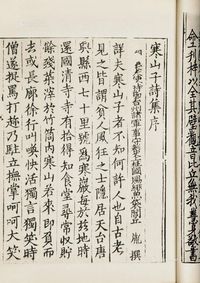 寒山子詩集序
胤撰
詳夫寒山子者不知何許人也自古老
見之皆謂貧人風狂之士隱居天台唐
興縣西七十里號為寒巖每於茲地時
還國清寺寺有拾得知食堂尋常收貯
餘殘菜滓於竹筒內寒山若來即負而
去或長廊徐行叫喚快活獨言獨笑時
僧遂捉罵打趁乃駐立撫掌呵呵大笑